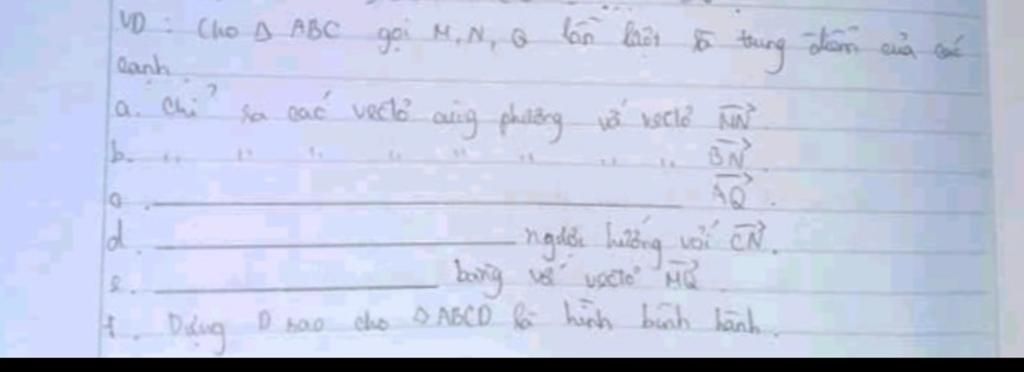 VD : Cho Δ ABC gọi M, N, Q lần lượt là trung điểm của các
cạnh
a. Chỉ ra các vectơ cùng phương với vectơ NN
b. " " " " " " " " BN
c. AQ.
d. ngược hướng với CN.
e. bằng với vectơ MQ
f. Dựng D sao cho Δ ABCD là hình bình hành.